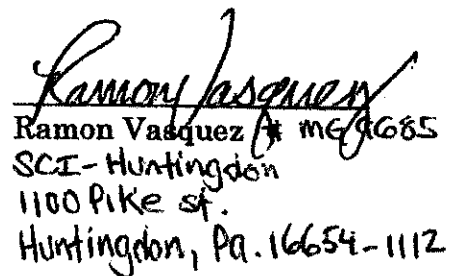 Ramon Vasquez
Ramon Vasquez # 685
SCI-Huntingdon
1100 Pike st.
Huntingdon, Pa. 16654-1112